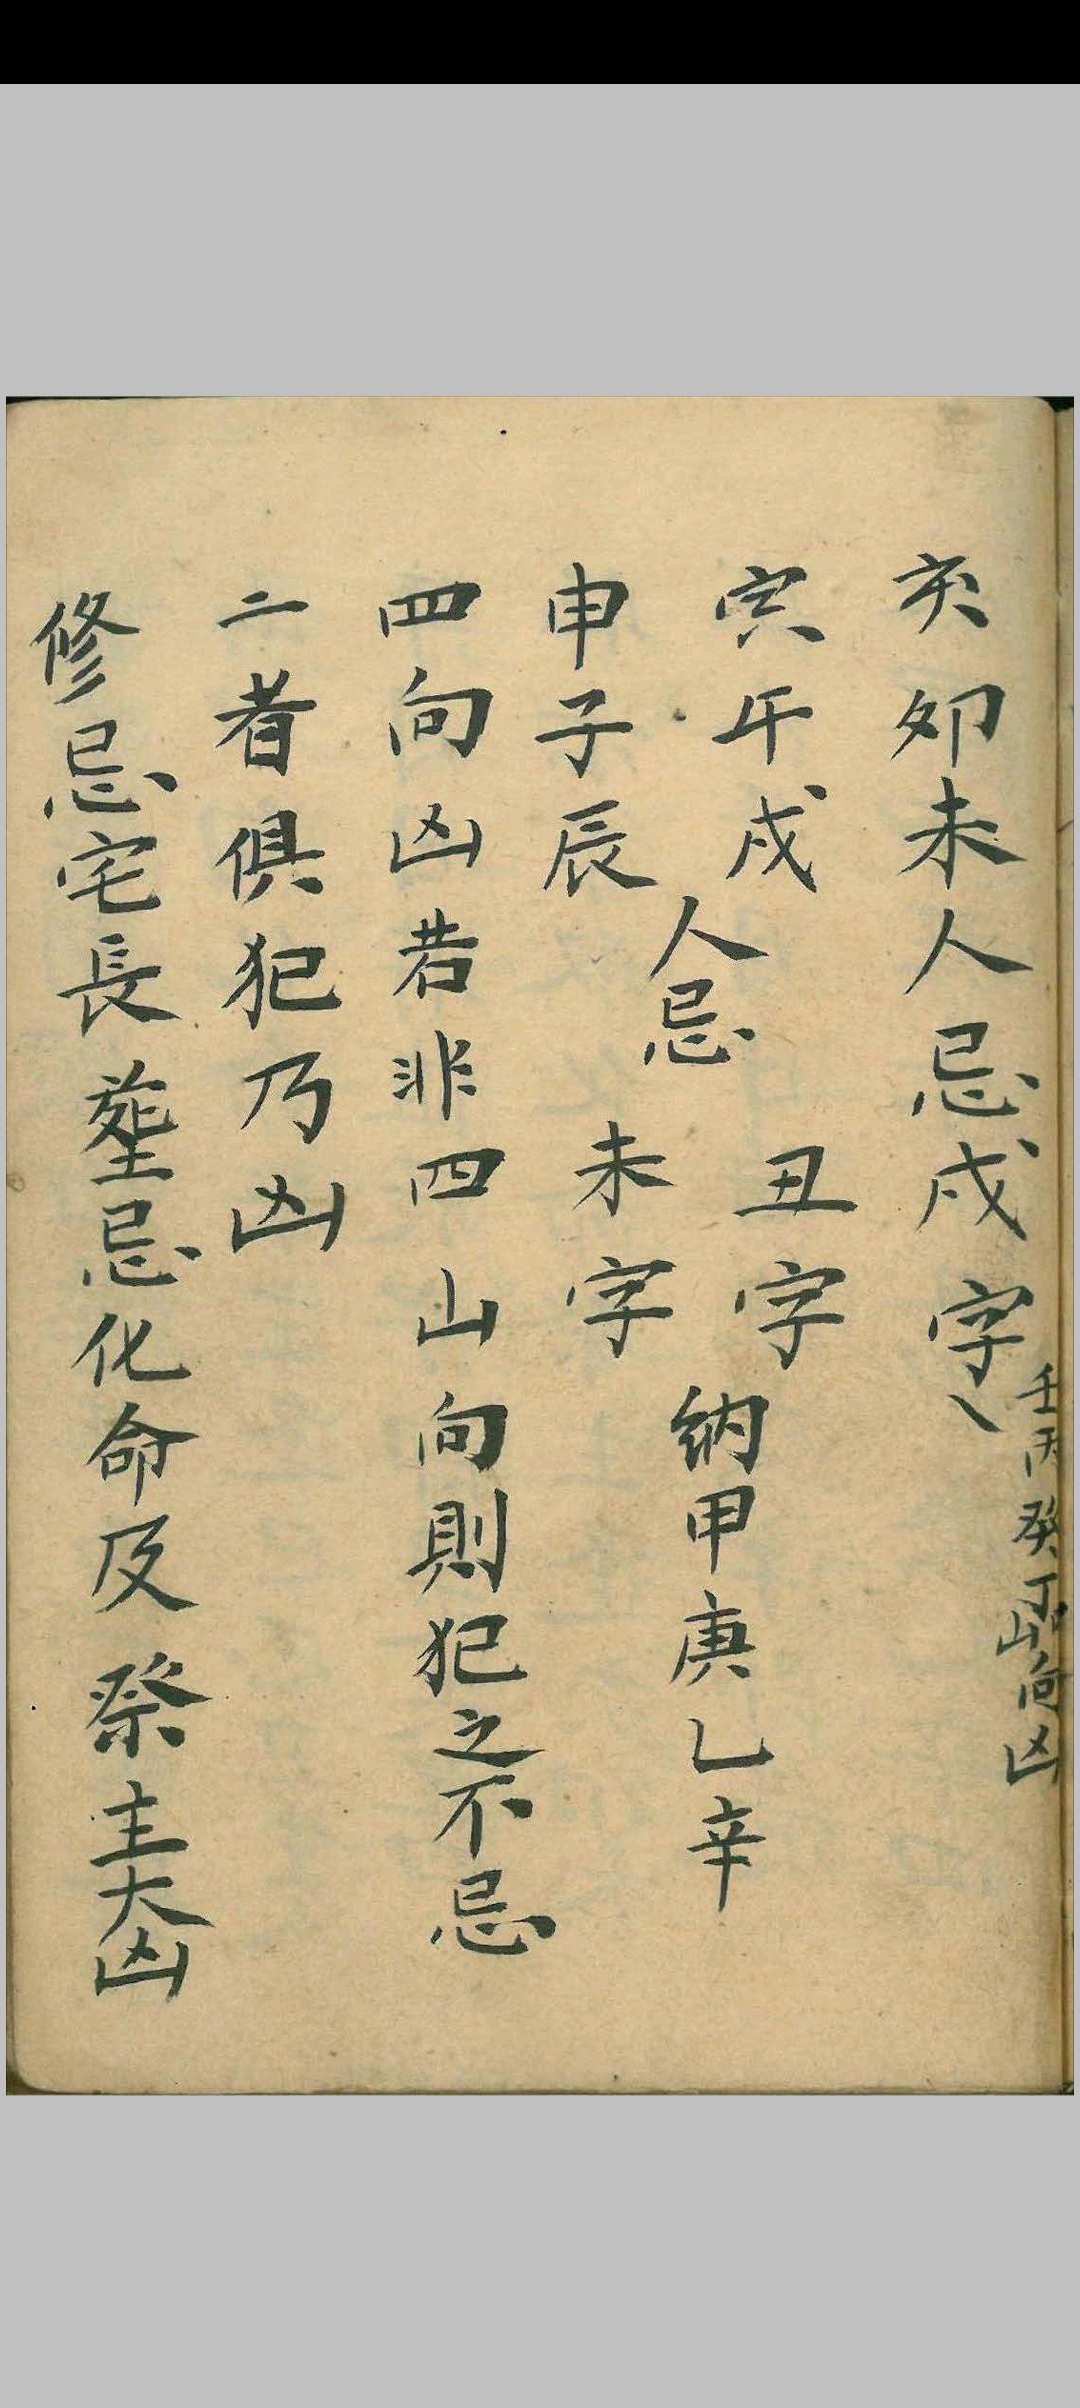 亥卯未人忌戌字
壬丙癸丁山向凶
寅午戌
申子辰
人忌
丑字
未字
納甲庚乙辛
四向凶若非四山向則犯之不忌
二者俱犯乃凶
修忌宅長塟忌化命及祭主大凶